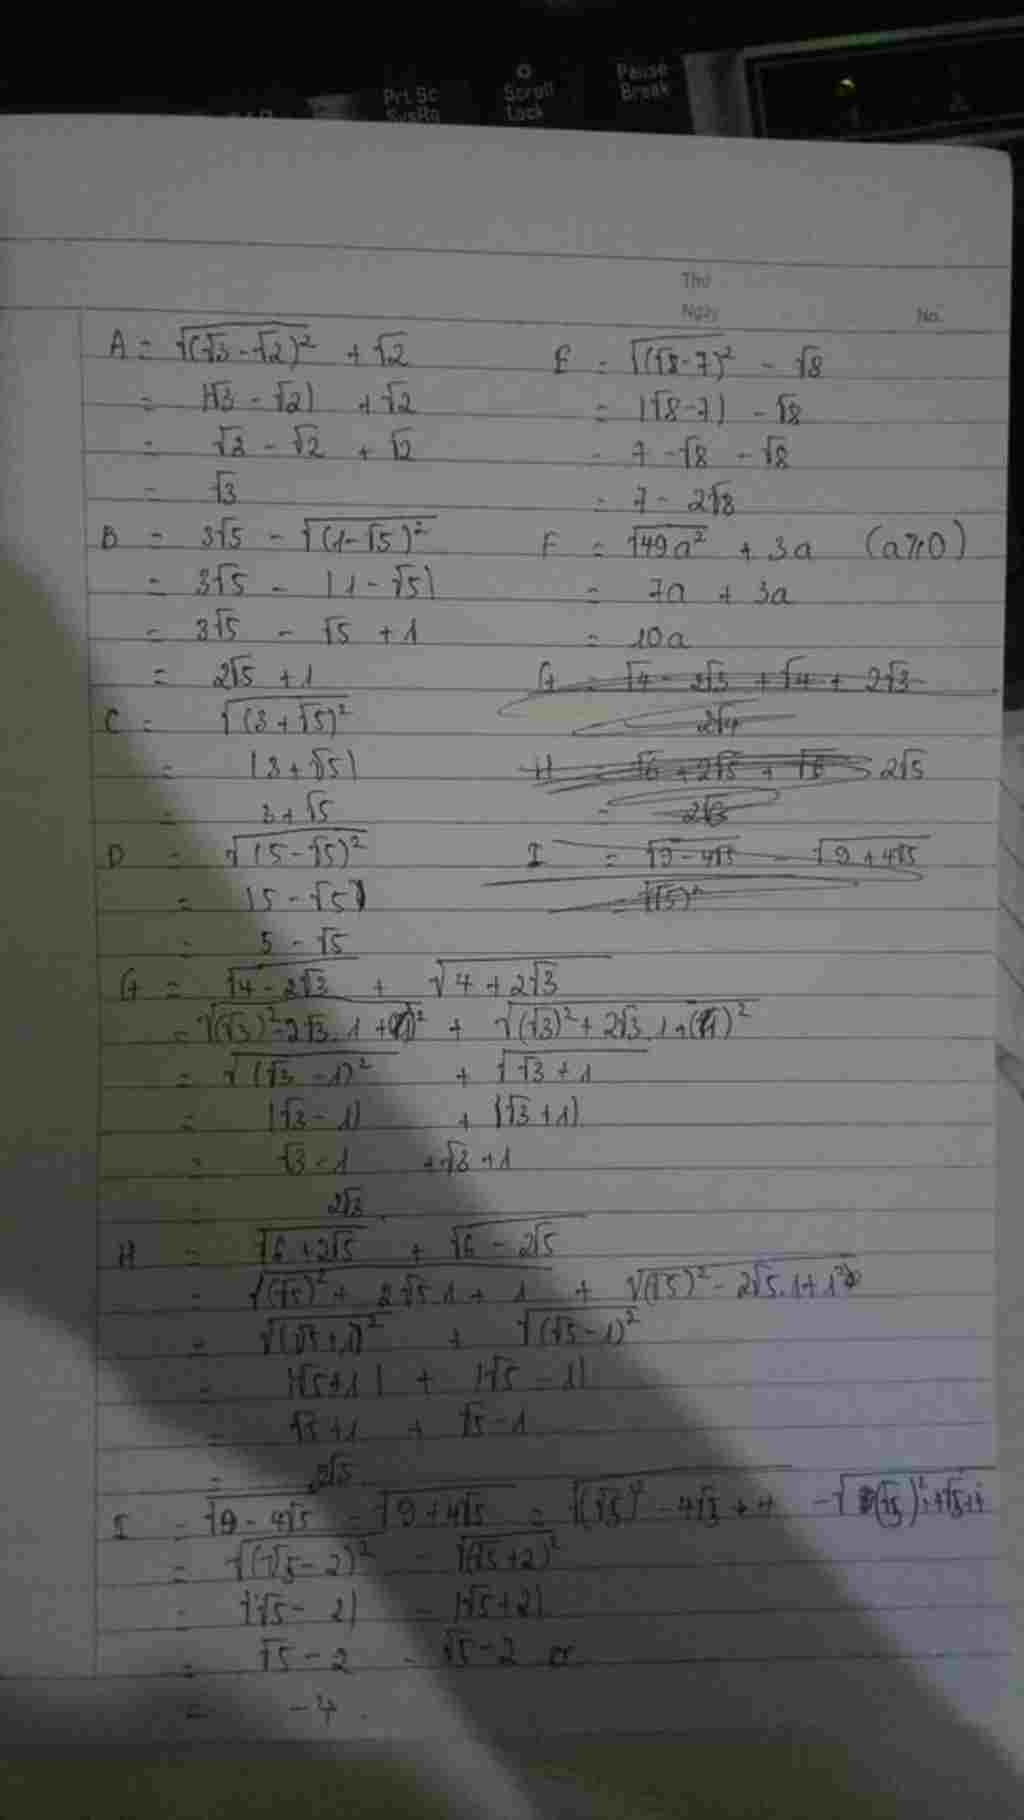 PrtSc
SysRq
Scroll
Lock
Pause
Break
Thứ
Ngày
No.
A = √(√3 - √2)² + √2
= |√3 - √2| + √2
= √3 - √2 + √2
= √3
B = 3√5 - √(1-√5)²
= 3√5 - |1 - √5|
= 3√5 - √5 + 1
= 2√5 + 1
C = √(3 + √5)²
= |3 + √5|
= 3 + √5
D = √(5 - √5)²
= |5 - √5|
= 5 - √5
E = √(√8 - 7)² - √8
= |√8 - 7| - √8
= 7 - √8 - √8
= 7 - 2√8
F = √49a² + 3a (a≥0)
= 7a + 3a
= 10a
G = √4 - 2√3 + √4 + 2√3
2√4
H = √6 + 2√5 + √6 2√5
= 2√3
I = √9 - 4√5 - √9 + 4√5
= √(√5)²
G = √4 - 2√3 + √4 + 2√3
= √(√3)² - 2√3.1 + (1)² + √(√3)² + 2√3.1 + (1)²
= √(√3 - 1)² + √√3 + 1
= |√3 - 1| + |√3 + 1|
= √3 - 1 + √3 + 1
= 2√3
H = √6 + 2√5 + √6 - 2√5
= √(√5)² + 2√5.1 + 1 + √(√5)² - 2√5.1 + 1²
= √(√5 + 1)² + √(√5 - 1)²
= |√5 + 1| + |√5 - 1|
= √5 + 1 + √5 - 1
= 2√5
I = √9 - 4√5 - √9 + 4√5 = √(√5)² - 4√5 + 4 - √(√5)² + 4√5 + 4
= √(√5 - 2)² - √(√5 + 2)²
= |√5 - 2| - |√5 + 2|
= √5 - 2 - √5 - 2
= -4